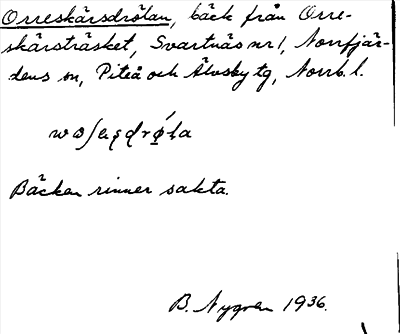 Orreskärsdrölan, bäck från Orre-
skärsträsket, Svartnäs nr 1, Norrfjär-
dens sn, Piteå och Älvsby tg, Norrb. l.
Bäcken rinner sakta.
B. Nygren 1936.